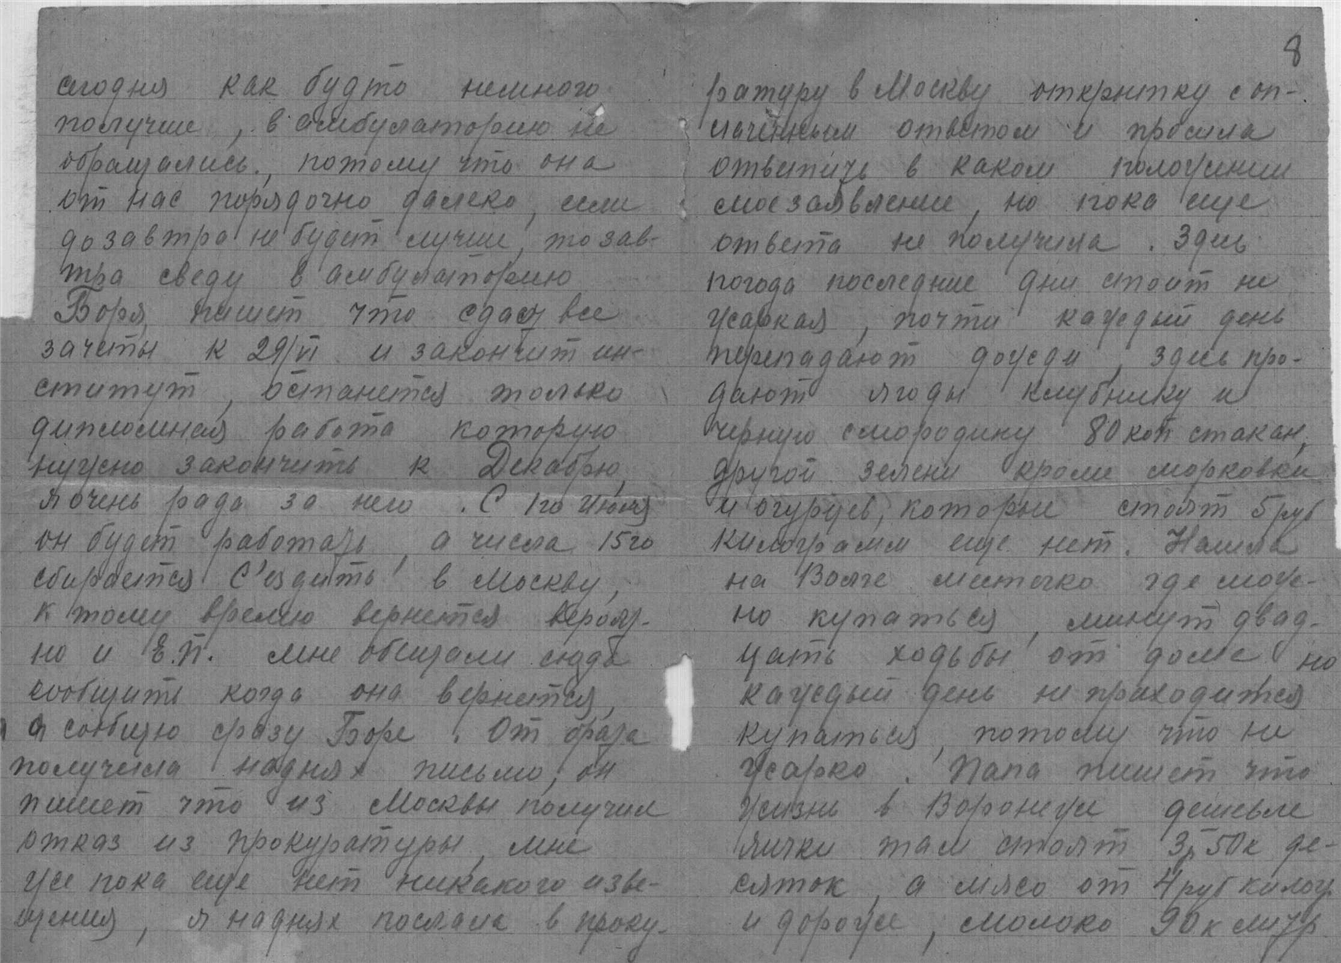 8
сегодня как будто немного
получше, в амбулаторию не
обращались, потому что она
от нас порядочно далеко, если
до завтра не будет лучше, то зав-
тра сведу в амбулаторию
Боря пишет что сдаст все
зачеты к 29/VI и закончит ин-
ститут, останется только
дипломная работа которую
нужно закончить к Декабрю,
я очень рада за него. С 1го Июля
он будет работать, а числа 15го
сбирается с'ездить в Москву,
к тому время вернется вероят-
но и Е.П. мне обещали сюда
сообщить когда она вернется,
я сообщу сразу Боре. От брата
получила наднях письмо, он
пишет что из Москвы получил
отказ из прокуратуры, мне
же пока еще нет никакого изве-
щения, я наднях послала в проку-
ратуру в Москву открытку с оп-
лаченным ответом и просила
ответить в каком положении
мое заявление, но пока еще
ответа не получила. Здесь
погода последние дни стоит не
жаркая, почти каждый день
перепадают дожди, здесь про-
дают ягоды клубнику и
черную смородину 80 коп стакан,
другой зелени кроме морковки
и огурцов, которые стоят 5 руб
килограмм еще нет. Нашла
на Волге местечко где мож-
но купаться, минут двад-
цать ходьбы от дома но
каждый день не приходится
купаться, потому что не
жарко. Папа пишет что
жизнь в Воронеже дешевле
яички там стоят 3р 50к де-
сяток, а мясо от 4 руб килогр
и дороже, молоко 90к литр